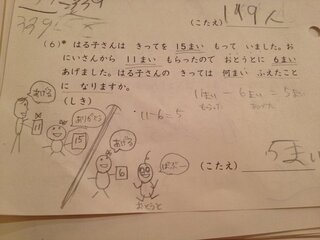 (こたえ) 119人
(6)* はる子さんは きってを 15まい もって いました。お
にいさんから 11まい もらったので おとうとに 6まい
あげました。はる子さんの きっては 何まい ふえたこと
に なりますか。
(しき)
11まい － 6まい ＝ 5まい
もらった あげた
11-6=5
あげる
ありがとう
あげる
ばぶー
11
15
6
おとうと
(こたえ) 5まい